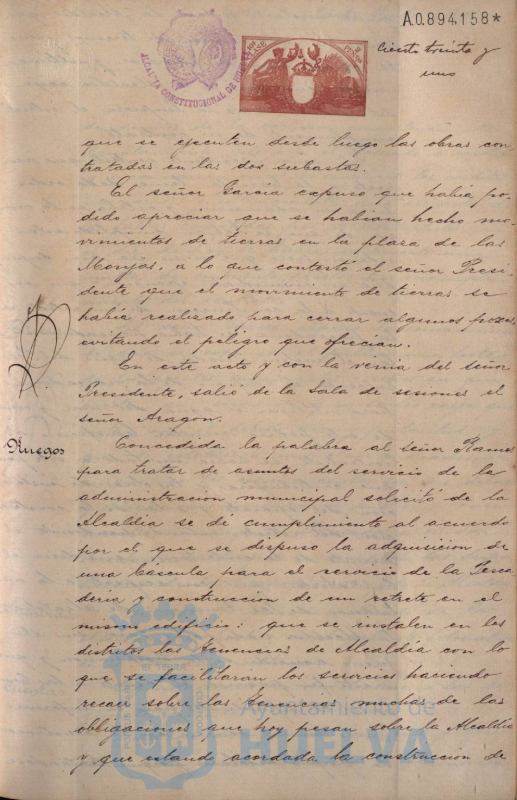 A.0.894.158*
ALCALDIA CONSTITUCIONAL DE
ciento treinta y
uno
que se ejecuten desde luego las obras con-
tratadas en las dos subastas.
El señor García expuso que había po-
dido apreciar que se habian hecho mo-
vimientos de tierras en la plaza de las
Monjas, á lo que contestó el señor Presi-
dente que el movimiento de tierras se
había realizado para cerrar algunos pozos,
evitando el peligro que ofrecian.
En este acto y con la vénia del señor
Presidente, salió de la Sala de sesiones el
señor Aragon.
Ruegos
Concedida la palabra al señor Ramos
para tratar de asuntos del servicio de la
administracion municipal solicitó de la
Alcaldía se dé cumplimiento al acuerdo
por el que se dispuso la adquisicion de
una báscula para el servicio de la Pesca-
deria y construccion de un retrete en el
mismo edificio: que se instalen en los
distritos las Tenencias de Alcaldía con lo
que se facilitaran los servicios haciendo
recaer sobre las Tenencias muchas de las
obligaciones que hoy pesan sobre la Alcaldía
y que estando acordada la construccion de
Ayuntamiento de
HUELVA